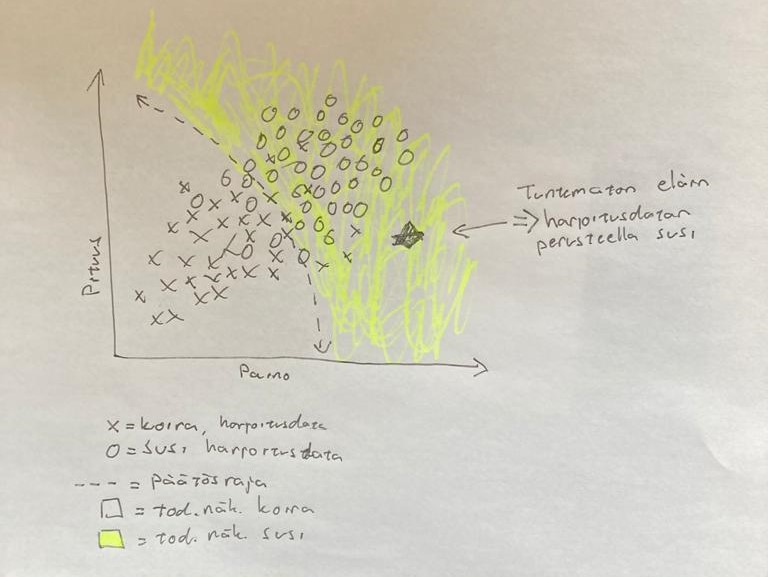 Tuntematon eläin
=> harjoitusdatan
perusteella susi
Pituus
Paino
x = koira, harjoitusdata
O = susi harjoitusdata
--- = päätösraja
= tod. näk. koira
= tod. näk. susi